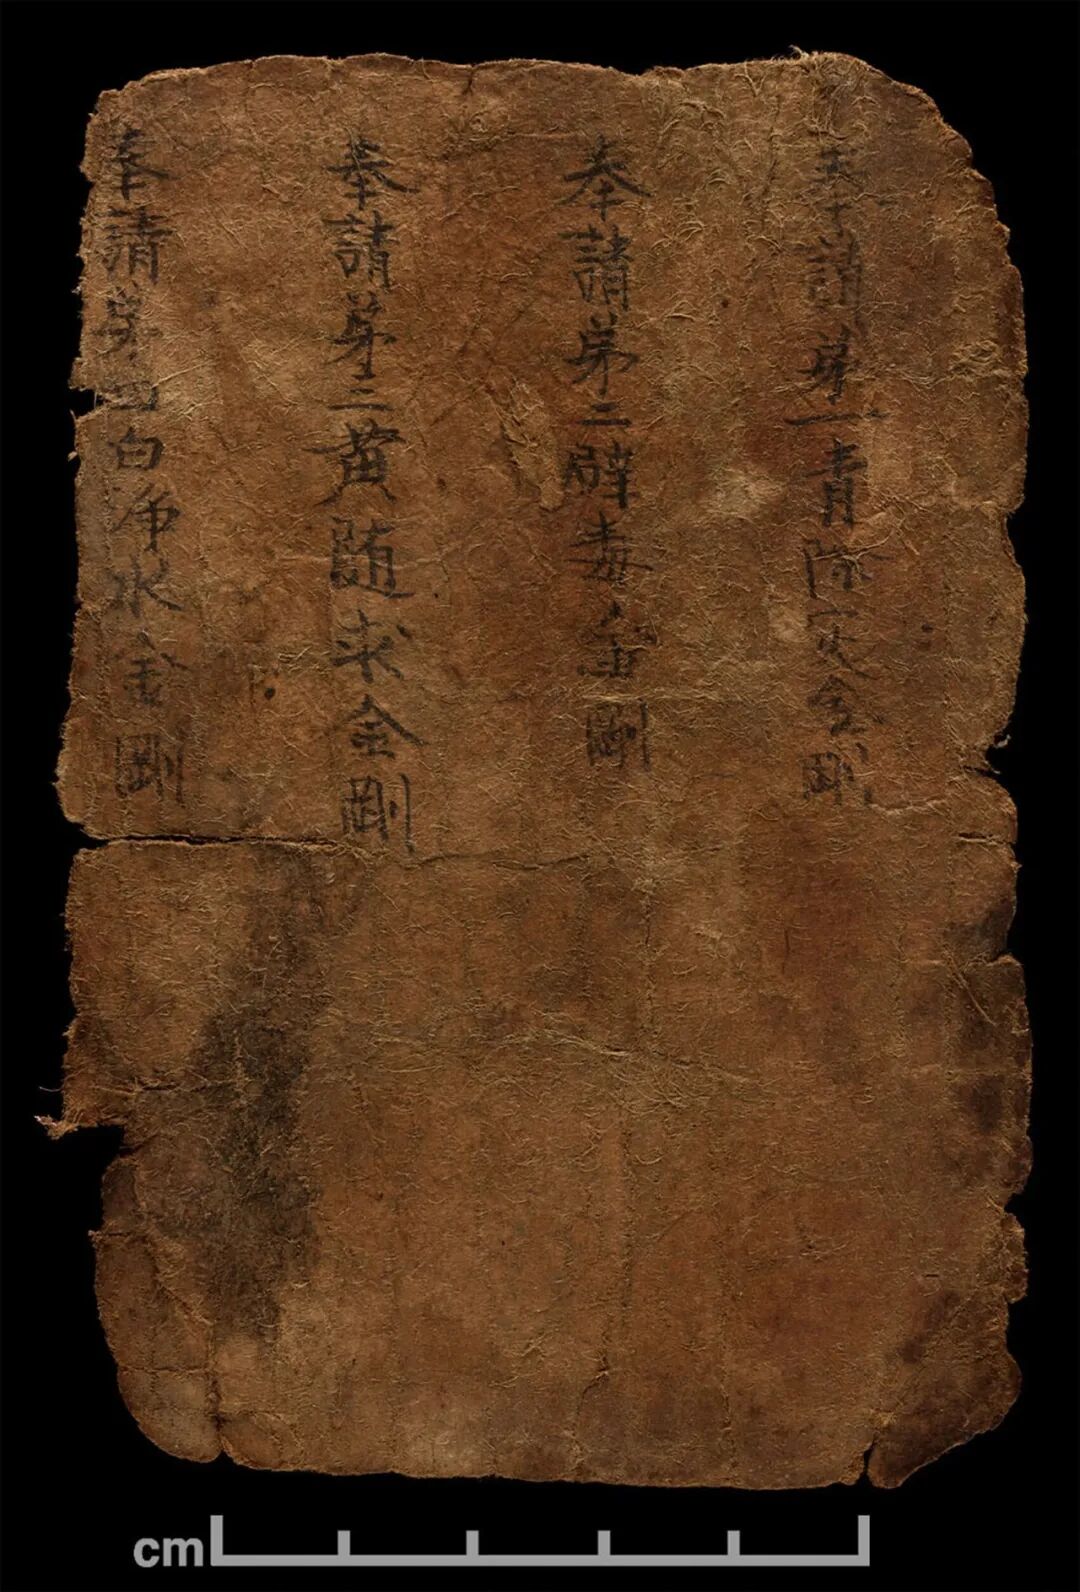 奉請第一青除灾金剛
奉請第二辟毒金剛
奉請第三黄随求金剛
奉請第四白净水金剛
cm